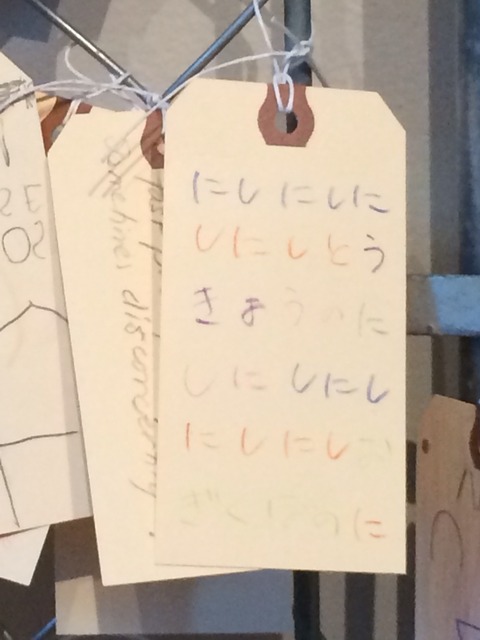 にしにしに
しにしとう
きょうのに
しにしにし
にしにしお
ぎくぼうのに
sometimes disconcerting.
just p
SE
OS